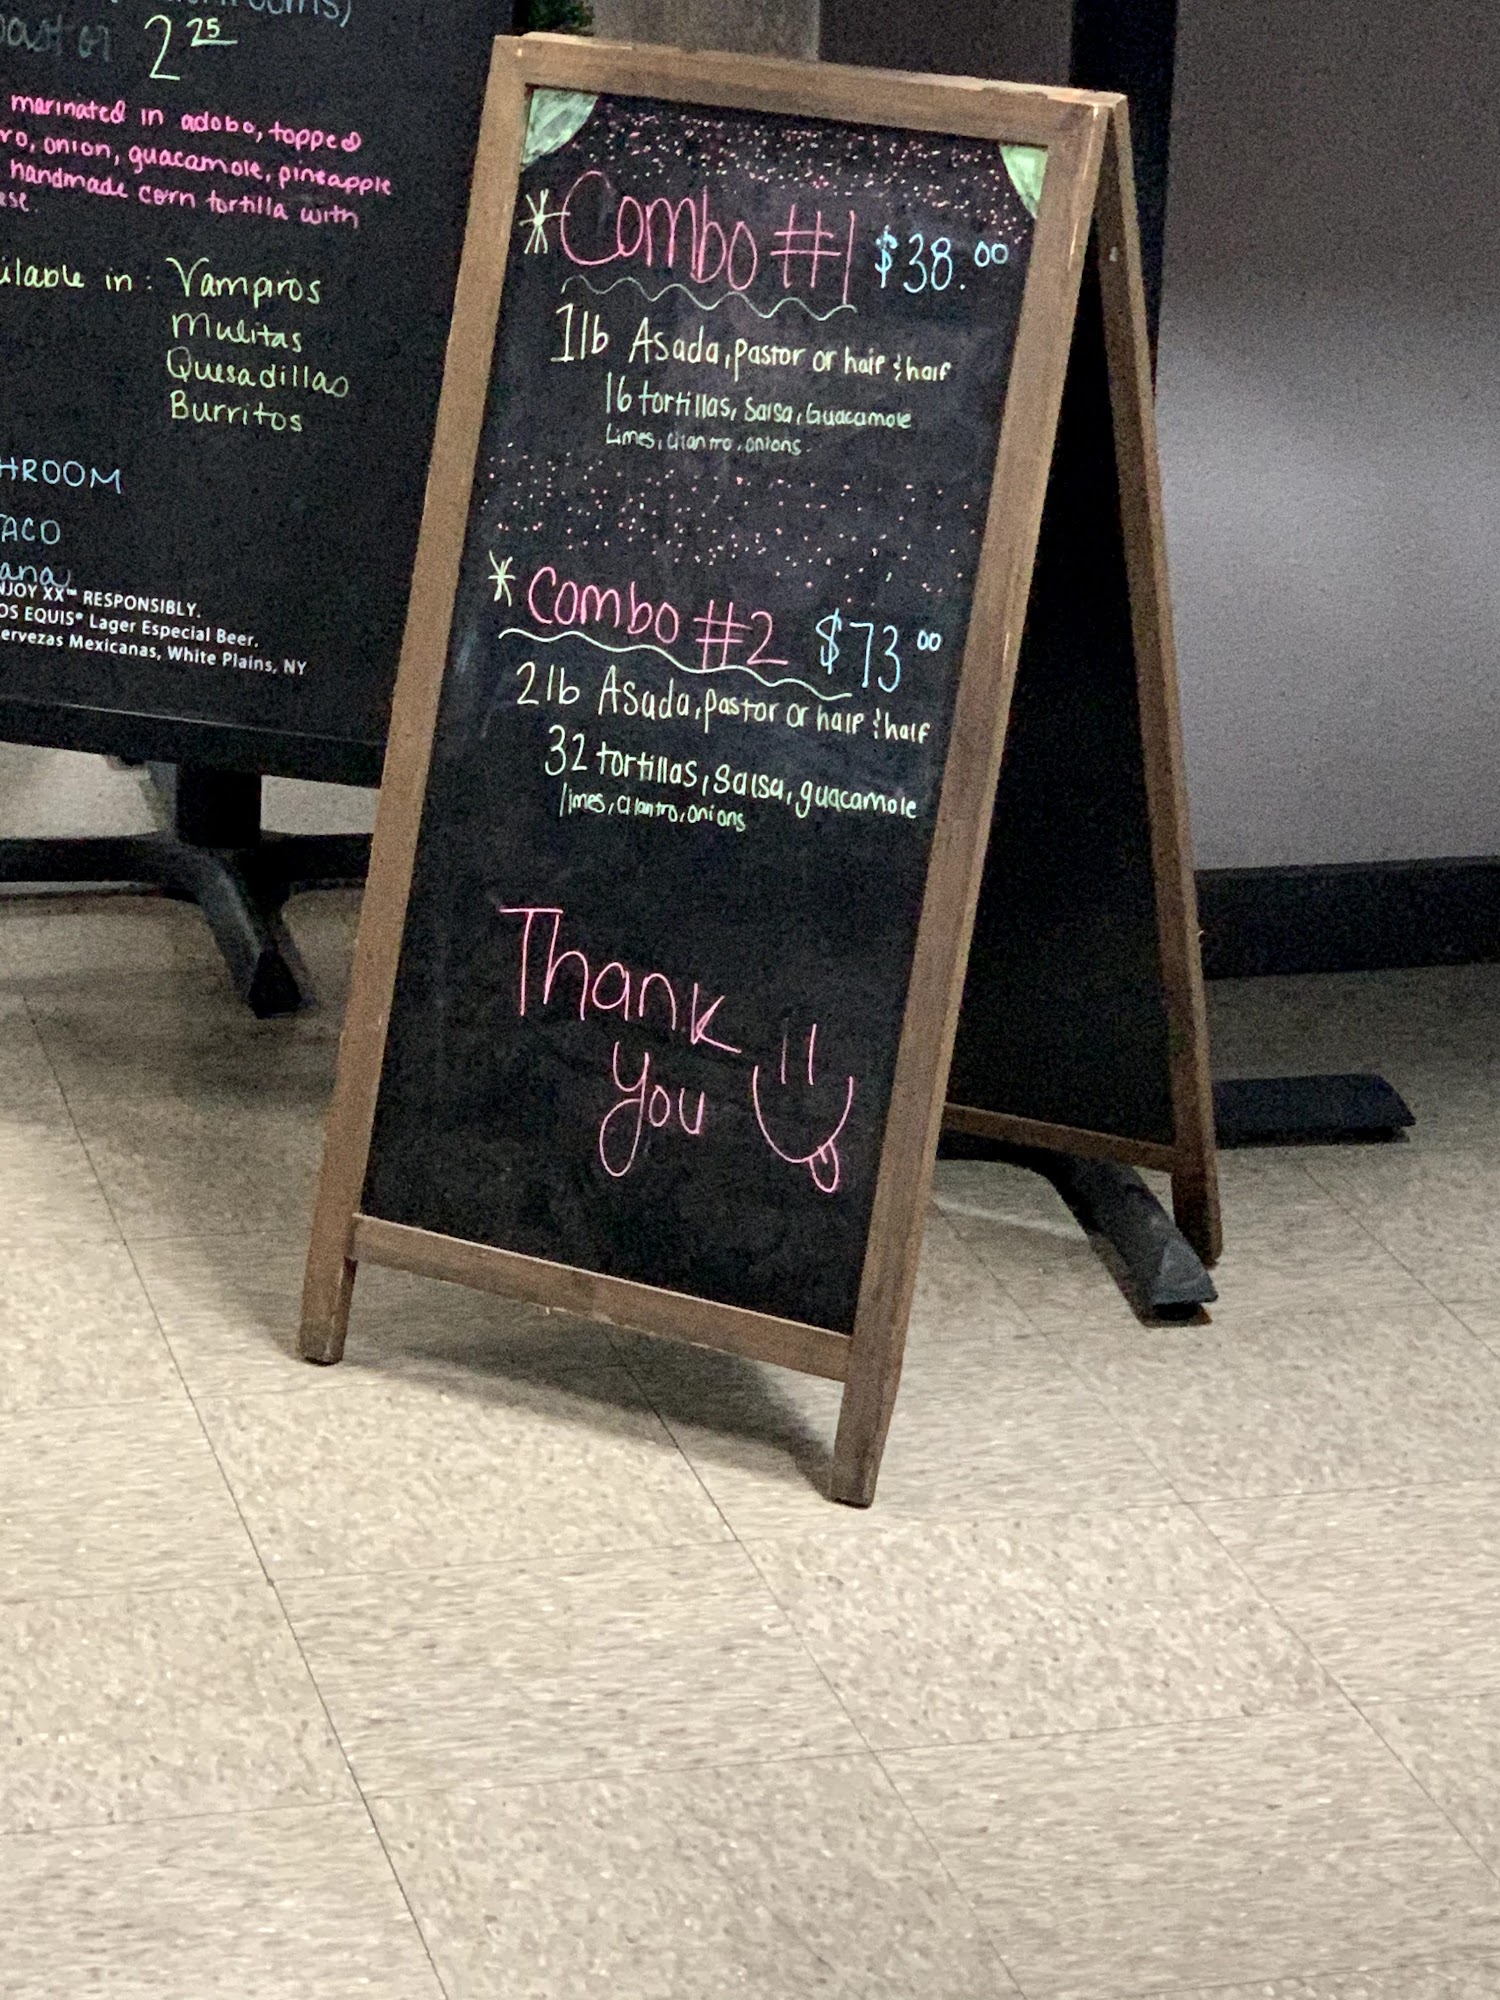 2 25
marinated in adobo, topped
onion, guacamole, pineapple
handmade corn tortilla with
in: Vampiros
Mulitas
Quesadillas
Burritos
TACO
XX™ RESPONSIBLY.
EQUIS® Lager Especial Beer.
Mexicanas, White Plains, NY
*Combo #1 $38.00
1lb Asada, pastor or half & half
16 tortillas, Salsa, Guacamole
Limes, cilantro, onions.
*Combo #2 $73 00
2lb Asada, pastor or half & half
32 tortillas, Salsa, guacamole
limes, cilantro, onions
Thank
you